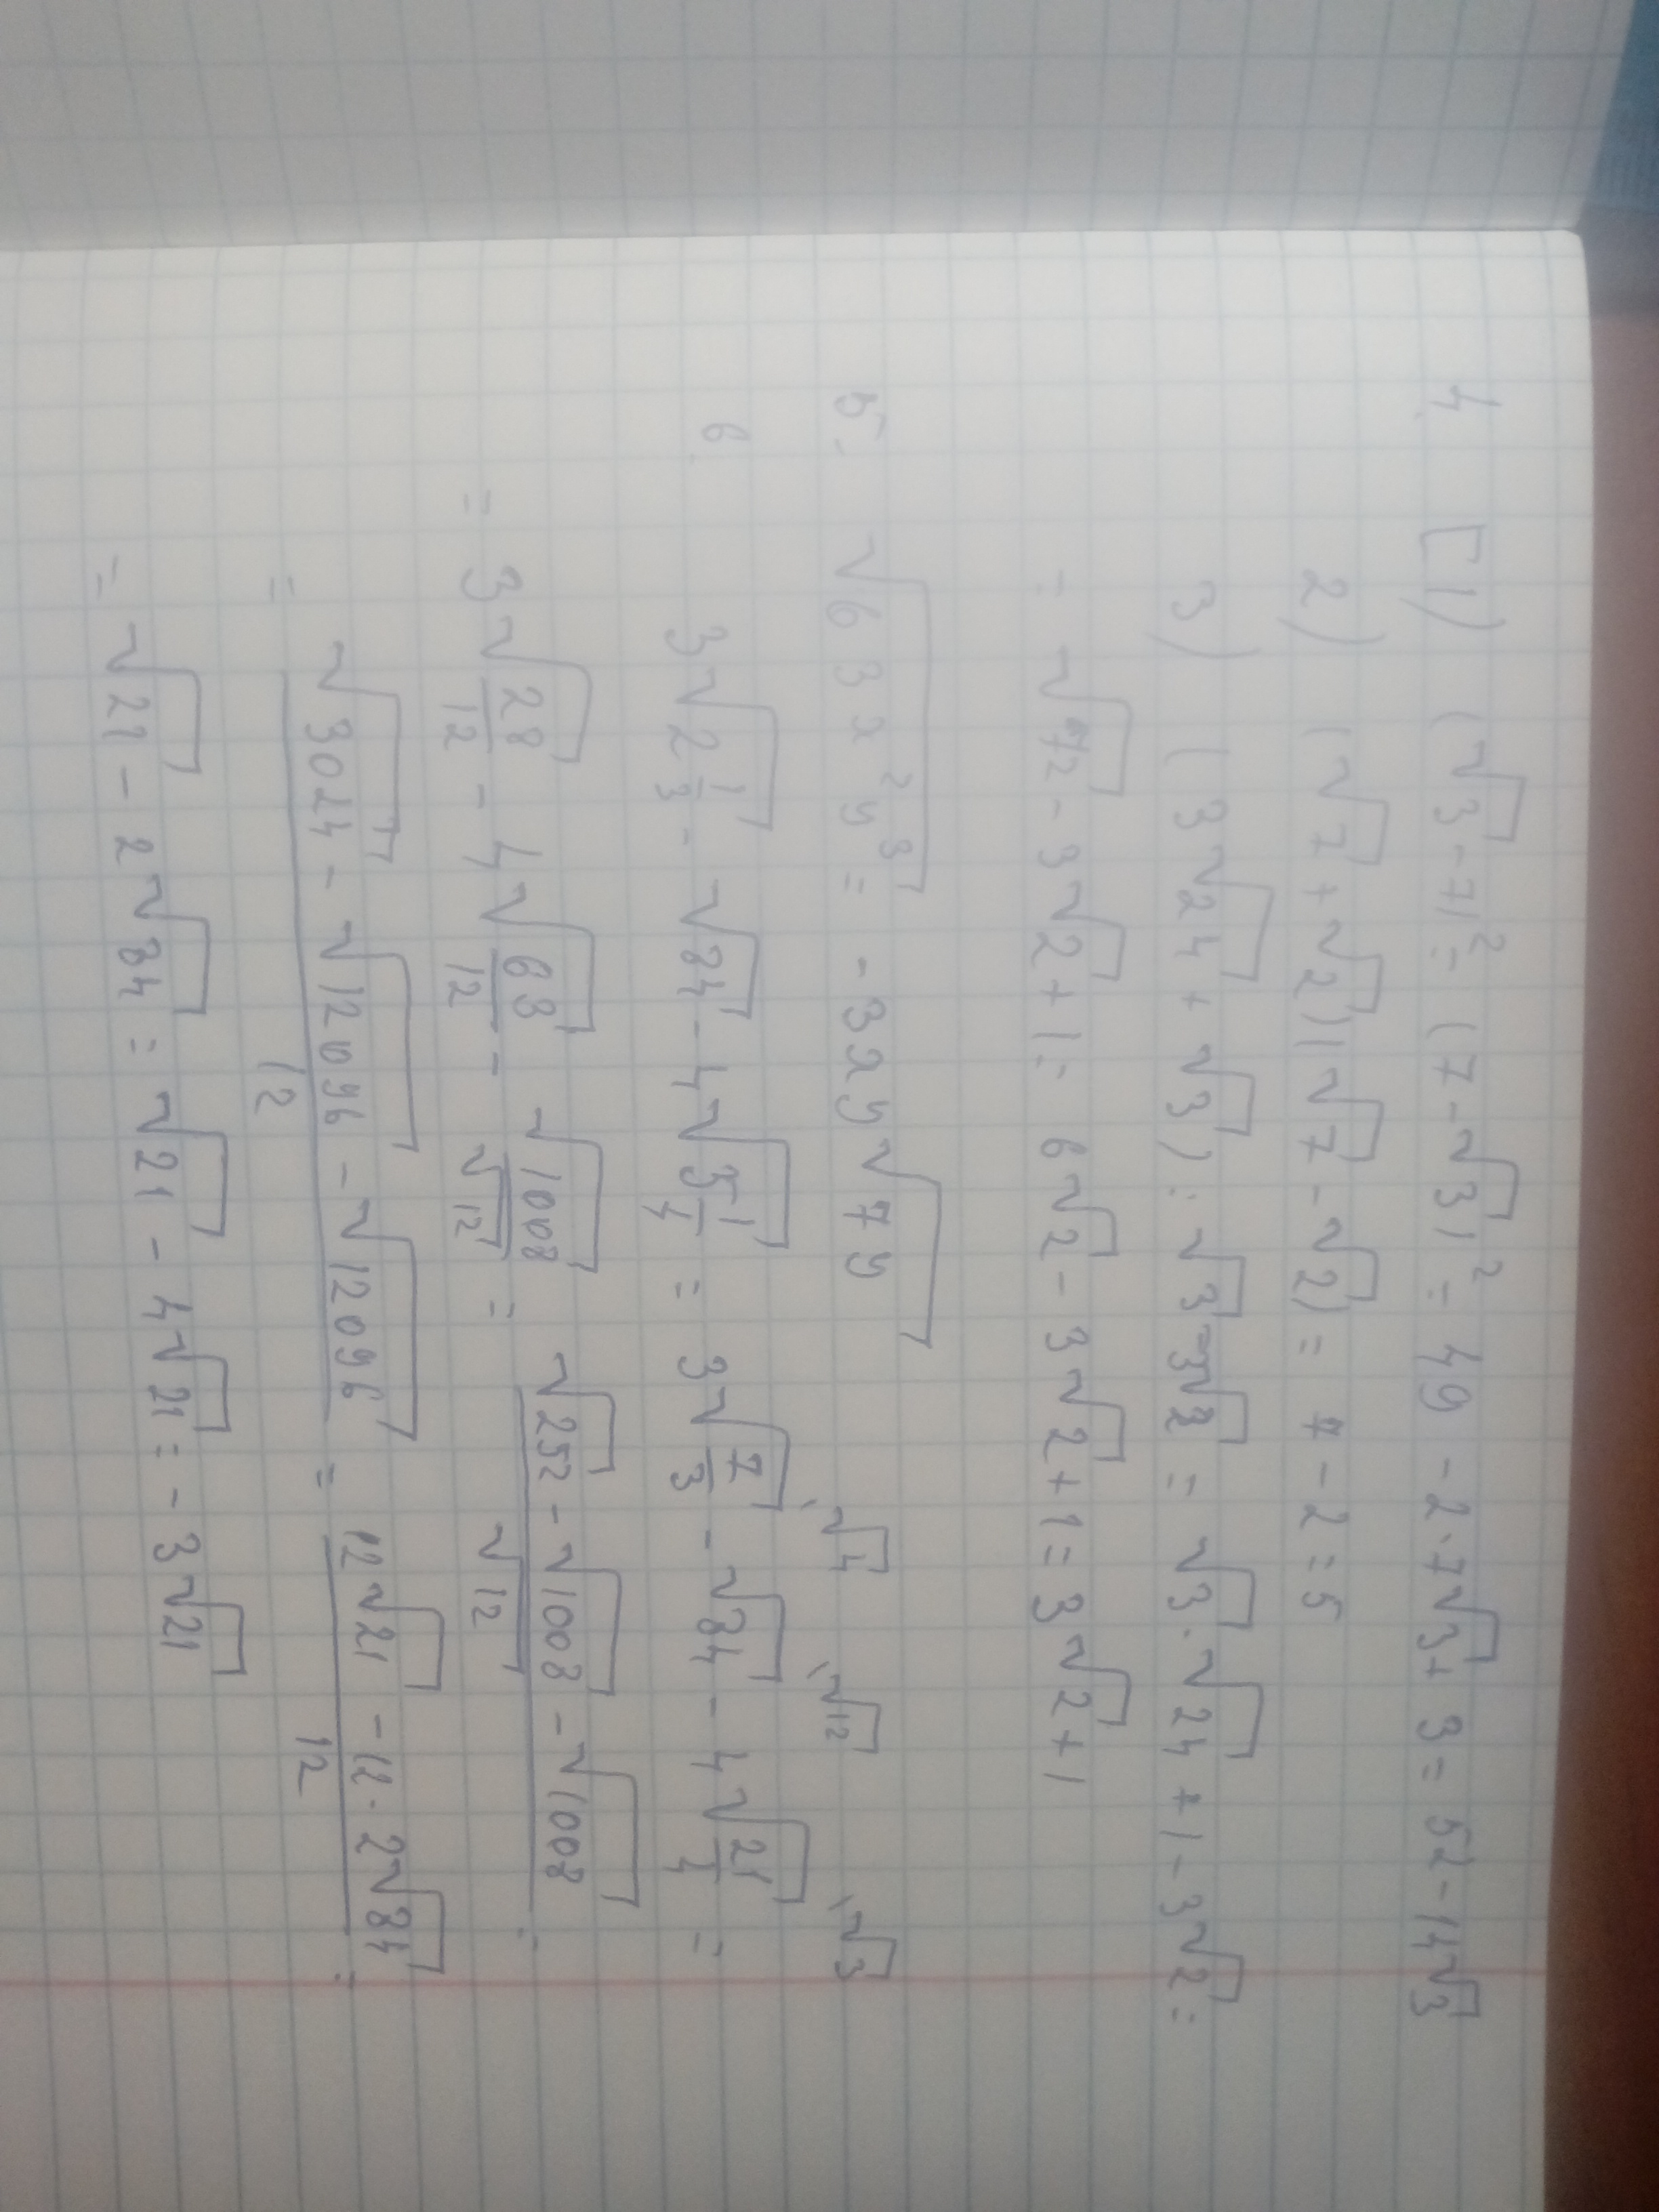 4. [1) (√3-7)² = (7-√3)² = 49 - 2·7√3 + 3 = 52 - 14√3
2) (√7 + √2)(√7 - √2) = 7 - 2 = 5
3) (3√24 + √3) : √3 - 3√2 = √3 · √24 + 1 - 3√2 =
= √72 - 3√2 + 1 = 6√2 - 3√2 + 1 = 3√2 + 1
5. √63x²y³ = -3xy√7y
\√4 \√12 \√3
6. 3√2 1/3 - √84 - 4√5 1/4 = 3√7/3 - √84 - 4√21/4 =
= 3√28/12 - 4√63/12 - √1008/√12 = √252 - √1008 - √1008/√12 =
= √3024 - √12096 - √12096/12 = 12√21 - 12·2√84/12 =
= √21 - 2√84 = √21 - 4√21 = -3√21